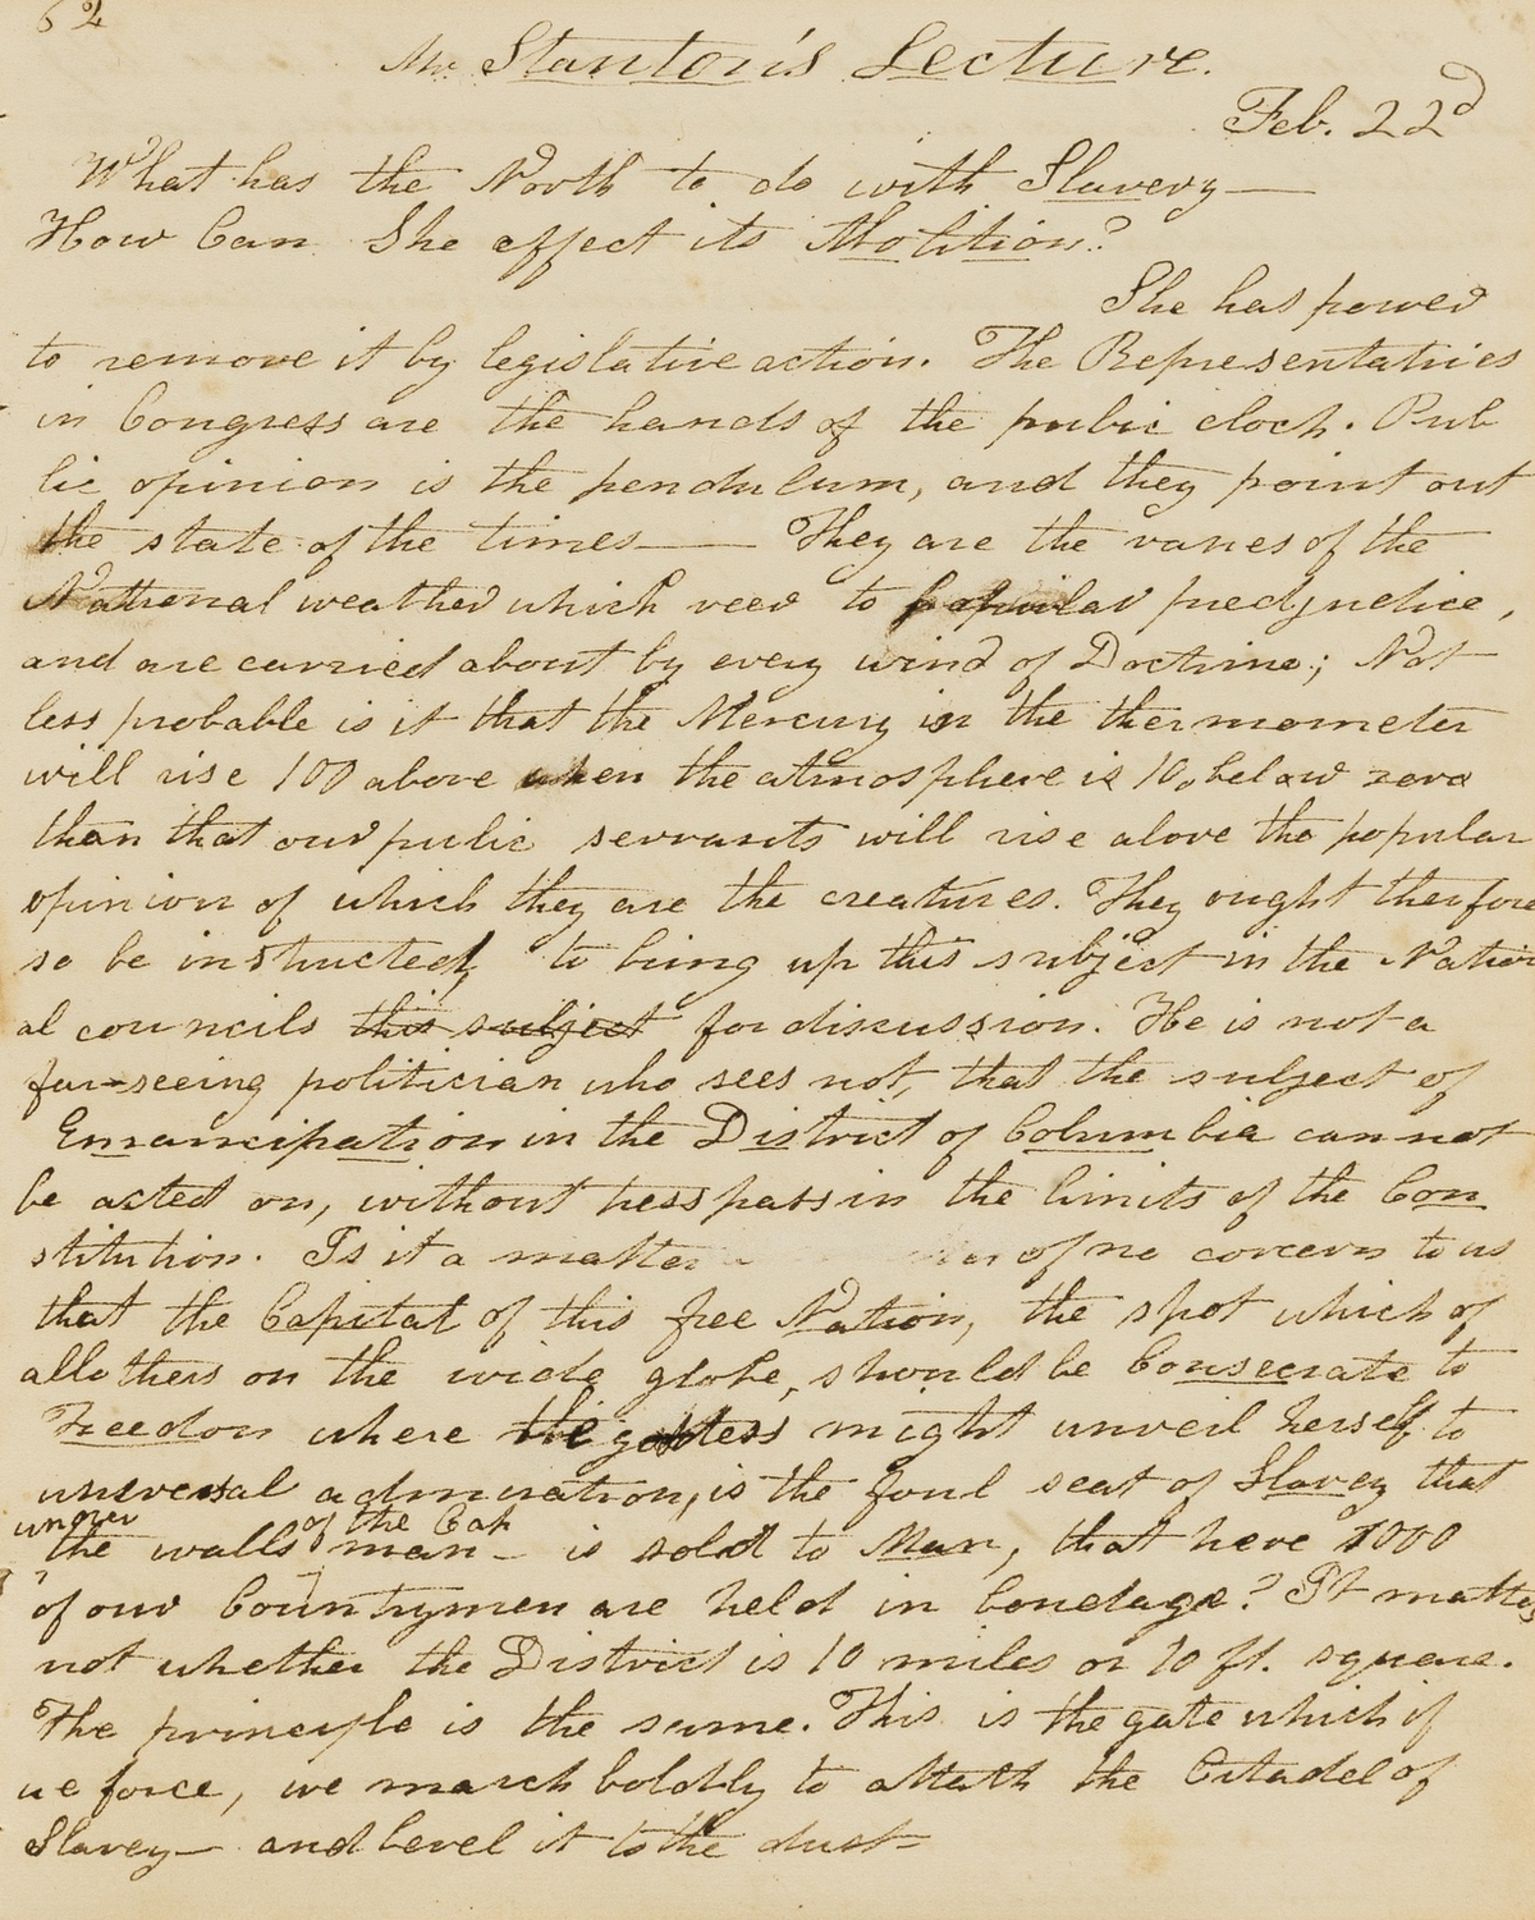 62
Mr. Stanton's Lecture.
Feb. 22d
What has the North to do with Slavery—
How Can She effect its Abolition?
She has power
to remove it by legislative action. The Representatives
in Congress are the hands of the pubic clock. Pub
lic opinion is the pendulum, and they point out
the state of the times— They are the vanes of the
National weather which veer to popular predjudice,
and are carried about by every wind of Doctrine; Not
less probable is it that the Mercury in the thermometer
will rise 100 above when the atmosphere is 10, below zero
than that our pulic servants will rise above the popular
opinion of which they are the creatures. They ought therfore
so be instructed, to bring up this subject in the Nation
al councils this subject for discussion. He is not a
far-seeing politician who sees not, that the subject of
Emancipation in the District of Columbia can not
be acted on, without tresspass in the limits of the Con
stitution. Is it a matter of no concern to us
that the Capital of this free Nation, the spot which of
all others on the wide globe, should be Consecrate to
Freedon where the goddess might unveil herself to
universal admiration, is the foul seat of Slavey that
under of the Cap
the walls man— is sold to Man, that here 7000
of our Countrymen are held in bondage? It matters
not whether the District is 10 miles or 10 ft. square.
The principle is the same. This is the gate which if
we force, we march boldly to attack the Citadel of
Slavey— and level it to the dust—